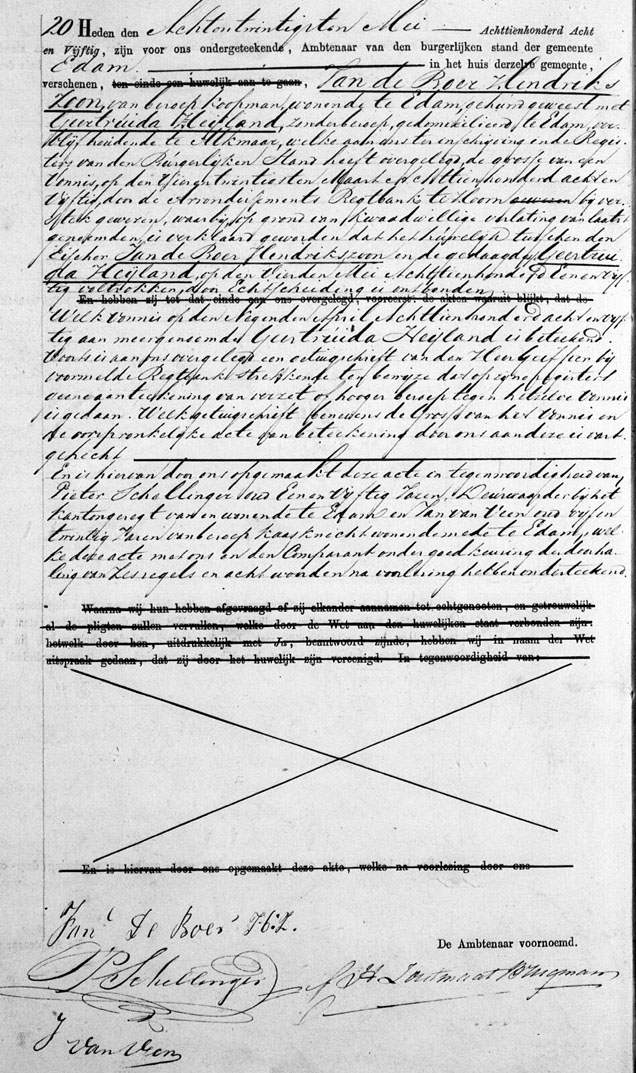 20 Heden den Achtentwintigsten Mei — Achttienhonderd Acht
en Vijftig, zijn voor ons ondergeteekende, Ambtenaar van den burgerlijken stand der gemeente
Edam in het huis derzelve gemeente,
verschenen, ten einde een huwelijk aan te gaan, Jan de Boer Hendriks
Zoon, van beroep koopman, wonende te Edam, gehuwd geweest met
Geertruida Heijland, zonder beroep, gedomicilieerd te Edam, ver-
blijf houdende te Alkmaar, welke aan ons ter inschrijving in de Regis-
ters van den Burgerlijken Stand heeft overgelegd, de grosse van een
vonnis, op den Maart Achttienhonderd acht en
vijftig, door de Arrondissements Regtbank te Hoorn bij ver-
stek gewezen, waarbij, op grond van kwaadwillige verlating van laatst
genoemden, is verklaard geworden dat het huwelijk tusschen den
Eischer Jan de Boer Hendrikszoon en de gedaagde Geertrui-
da Heijland, op den Vierden Mei Achttienhonderd Een en vijf-
tig voltrokken, door Echtscheiding is ontbonden
En hebben zij tot dat einde aan ons overgelegd, vooreerst: de akten waaruit blijkt, dat de
Welk vonnis op den Negenden April Achttienhonderd acht en vijf-
tig aan meergenoemde Geertruida Heijland is beteekend.
Voorts is aan ons overgelegd een getuigschrift van den Heer Griffier bij
voormelde Regtbank strekkende ten bewijze dat op zijne registers
geene aanteekening van verzet of hooger beroep tegen hetzelve vonnis
is gedaan. Welk getuigschrift benevens de Grosse van het vonnis en
de oorspronkelijke acte van beteekening door ons aan deze is vast-
gehecht
En is hiervan door ons opgemaakt deze acte in tegenwoordigheid van
Pieter Schellinger oud Een en vijftig Jaren, Deurwaarder bij het
kantongeregt van en wonende te Edam en Jan van Veen oud vijf en
twintig Jaren van beroep kaasknecht wonende mede te Edam, wel-
ke deze acte met ons en den Comparant onder goedkeuring der doorha-
ling van zes regels en acht woorden na voorlezing hebben onderteekend.
Waarna wij hun hebben afgevraagd of zij elkander aannamen tot echtgenooten, en getrouwelijk
al de pligten zullen vervullen, welke door de Wet aan den huwelijken staat verbonden zijn.
hetwelk door hen, uitdrukkelijk met Ja, beantwoord zijnde, hebben wij in naam der Wet
uitspraak gedaan, dat zij door het huwelijk zijn vereenigd. In tegenwoordigheid van:
En is hiervan door ons opgemaakt deze akte, welke na voorlezing door ons
Jan De Boer
De Ambtenaar voornoemd.
P Schellinger
J
van Veen